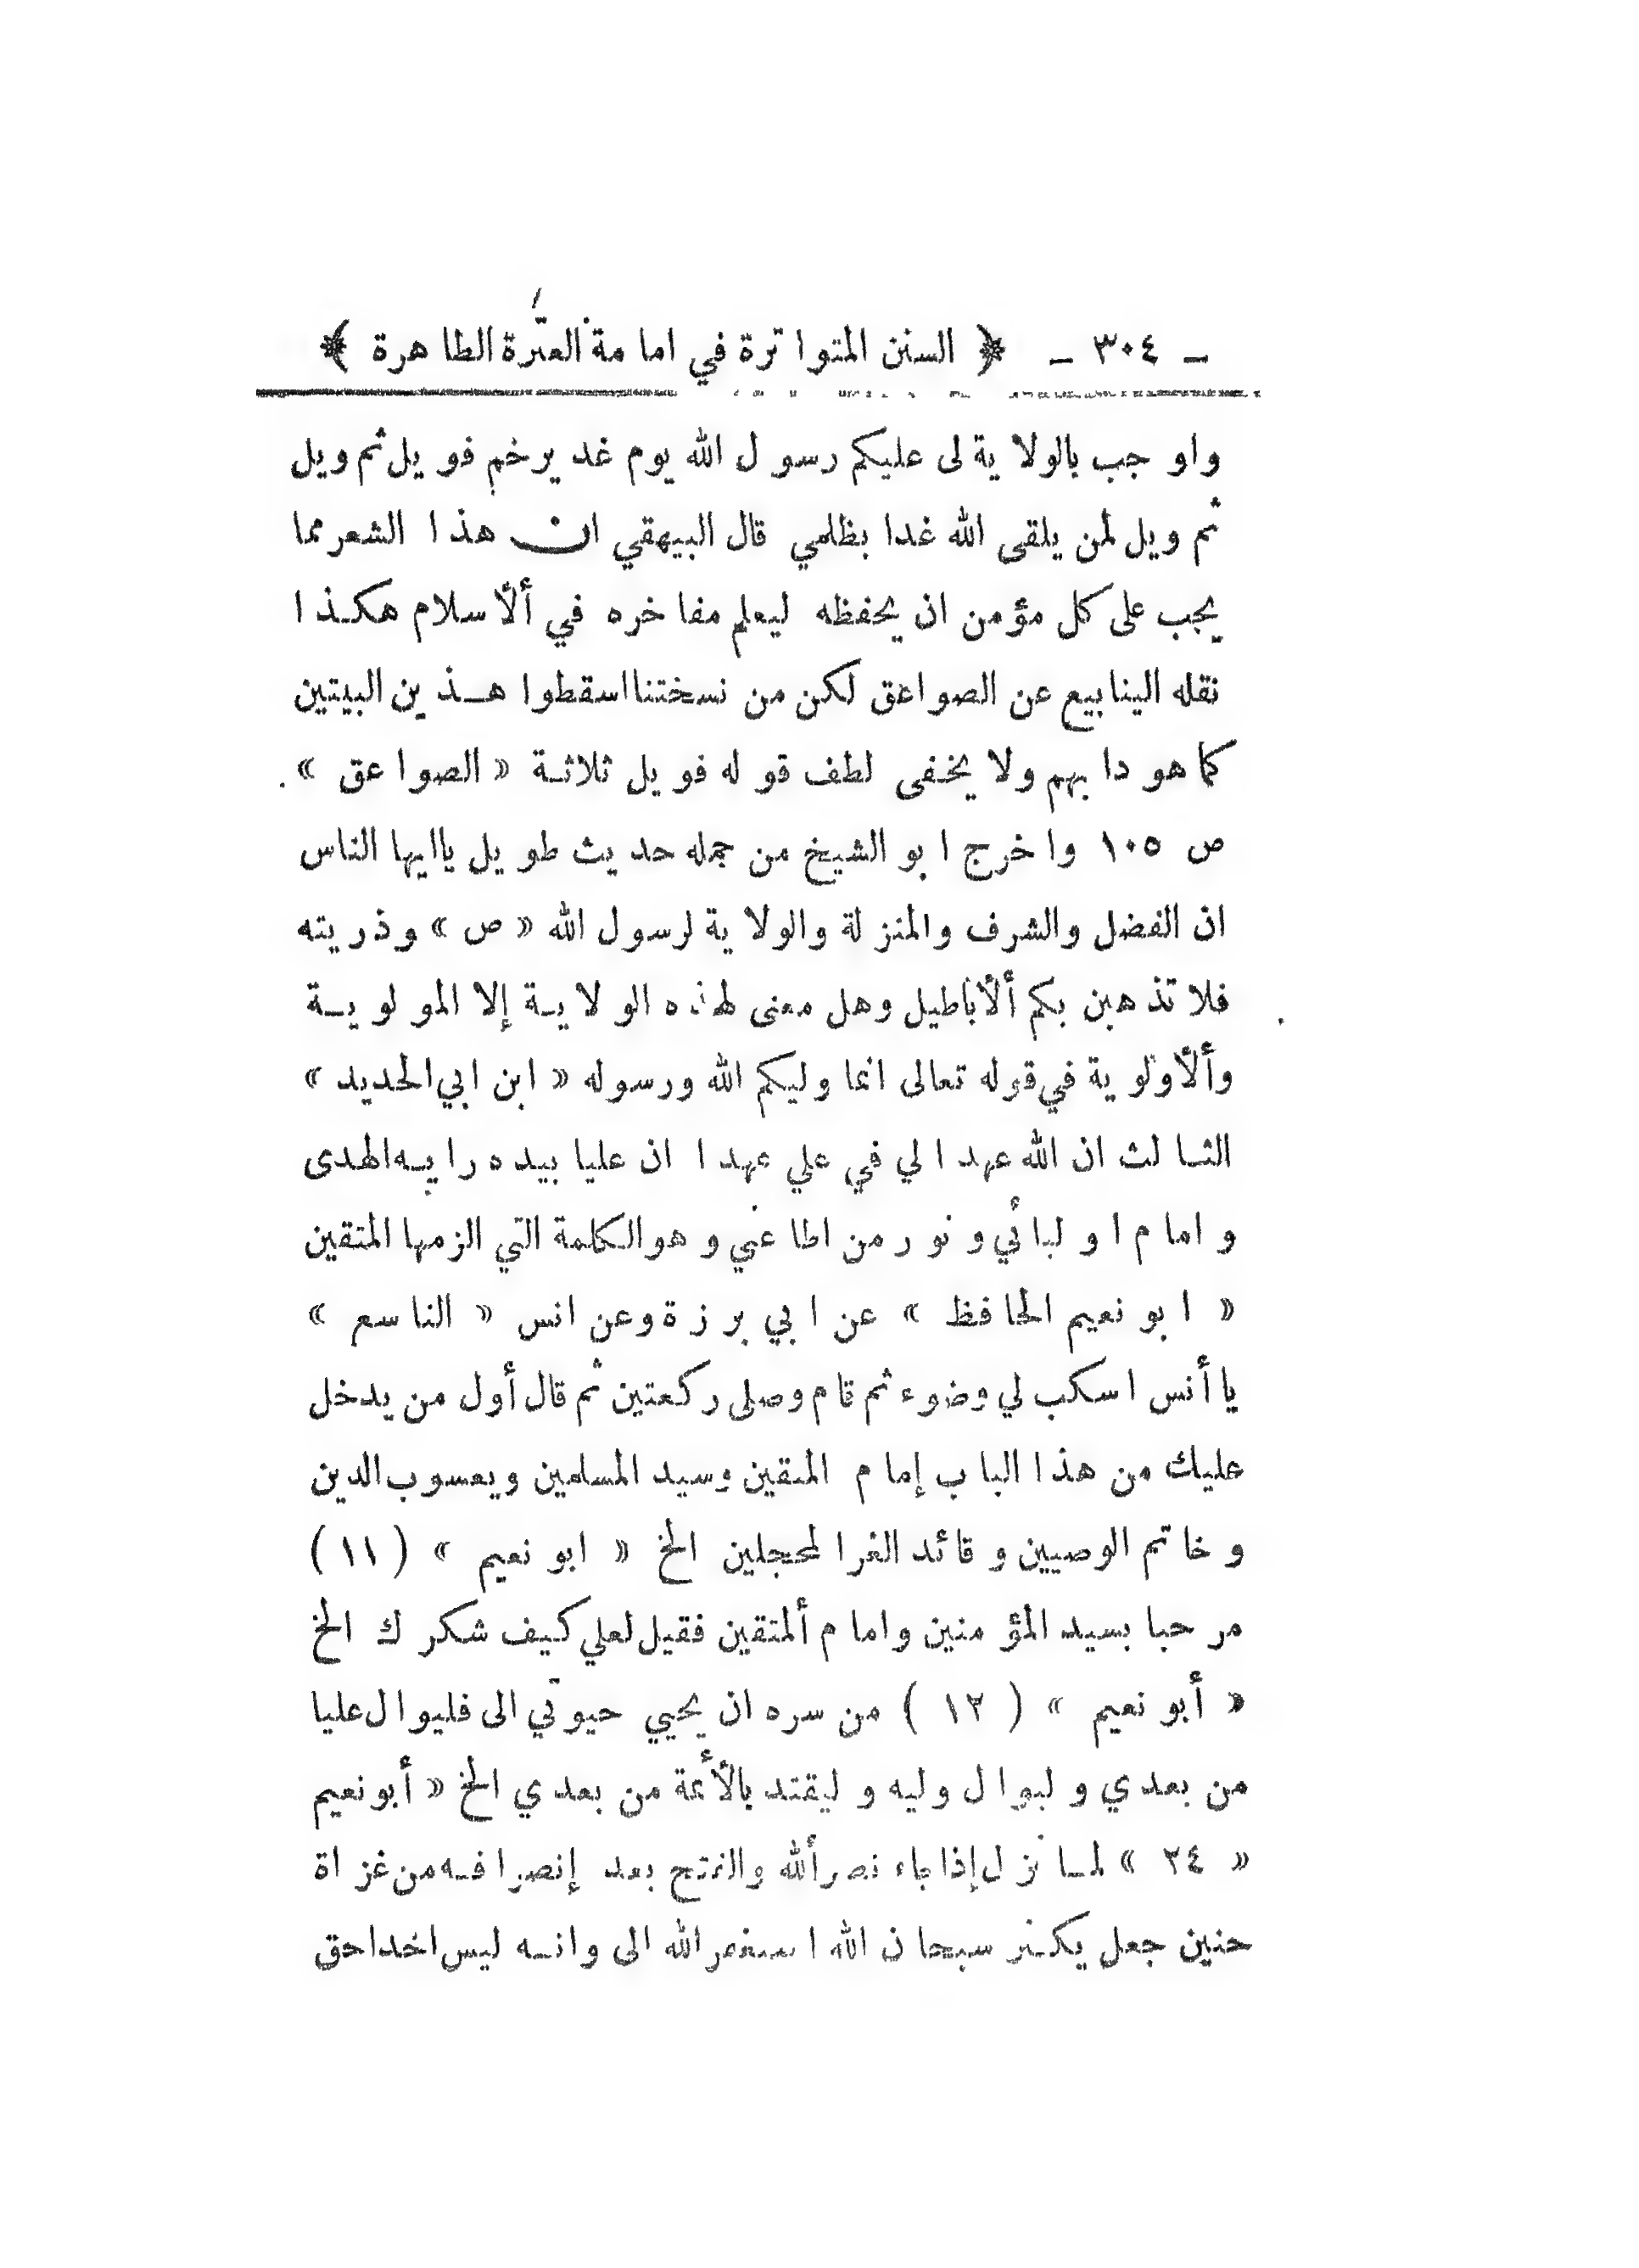 ـ ٣٠٤ ـ ﴿ السنن المتواترة في امامة العترة الطاهرة ﴾
واوجب بالولاية لى عليكم رسول الله يوم غديرخم فويل ثم ويل
ثم ويل لمن يلقى الله غدا بظلمي قال البيهقي ان هذا الشعر مما
يجب على كل مؤمن ان يحفظه ليعلم مفاخره في ألأسلام هكذا
نقله الينابيع عن الصواعق لكن من نسختنا اسقطوا هـذين البيتين
كما هو دابهم ولا يخفى لطف قوله فويل ثلاثـة « الصواعق »
ص ١٠٥ واخرج ابو الشيخ من جمله حديث طويل ياايها الناس
ان الفضل والشرف والمنزلة والولاية لرسول الله « ص » وذريته
فلا تذهبن بكم ألأباطيل وهل معنى لهذه الولايـة إلا المولويـة
وألأولوية في قوله تعالى انما وليكم الله ورسوله « ابن ابي الحديد »
الثـالث ان الله عهد الي في علي عهدا ان عليا بيده رايـه الهدى
وامام اوليائي ونور من اطاعني وهو الكلمة التي الزمها المتقين
« ابو نعيم الحافظ » عن ابي برزة وعن انس « التاسع »
يا أنس اسكب لي وضوء ثم قام وصلى ركعتين ثم قال أول من يدخل
عليك من هذا الباب إمام المتقين وسيد المسلمين ويعسوب الدين
وخاتم الوصيين وقائد الغر المحجلين الخ « ابو نعيم » (١١)
مرحبا بسيد المؤمنين وامام ألمتقين فقيل لعلي كيف شكرك الخ
« أبو نعيم » ( ١٢ ) من سره ان يحيي حيوتي الى فليوال عليا
من بعدي وليوال وليه وليقتد بالأئمة من بعدي الخ « أبو نعيم
« ٢٤ » لمـا نزل إذا جاء نصر ألله والفتح بعد إنصرافـه من غزاة
حنين جعل يكثر سبحان الله استغفر الله الى وانـه ليس احدا حق